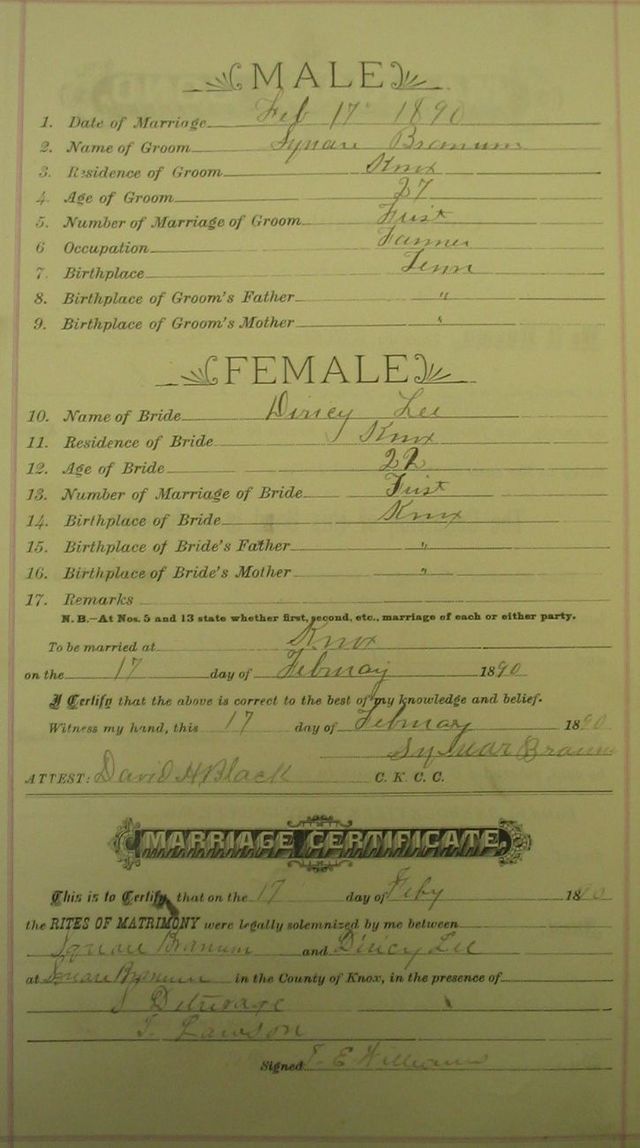 MALE
1. Date of Marriage Feb 17 1890
2. Name of Groom Square Branum
3. Residence of Groom Knox
4. Age of Groom 27
5. Number of Marriage of Groom First
6 Occupation Farmer
7. Birthplace Tenn
8. Birthplace of Groom's Father "
9. Birthplace of Groom's Mother "
FEMALE
10. Name of Bride Dircy Lee
11. Residence of Bride Knox
12. Age of Bride 22
13. Number of Marriage of Bride First
14. Birthplace of Bride Knox
15. Birthplace of Bride's Father "
16. Birthplace of Bride's Mother "
17. Remarks
N. B.—At Nos. 5 and 13 state whether first, second, etc., marriage of each or either party.
To be married at Knox
on the 17 day of February 1890
I Certify that the above is correct to the best of my knowledge and belief.
Witness my hand, this 17 day of February 1890
Branum
ATTEST: David H Black C. K. C. C.
MARRIAGE CERTIFICATE.
This is to Certify, that on the 17 day of Feby 18
the RITES OF MATRIMONY were legally solemnized by me between
Squair Branum and Dircy Lee
at Squair Branum in the County of Knox, in the presence of
J
T. Lawson
Signed T. E Williams